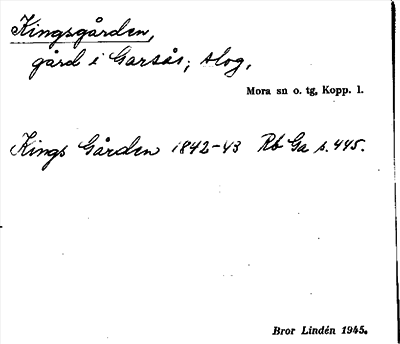 Kingsgården,
gård i Garsås; slog,
Mora sn o. tg, Kopp. l.
Kings Gården 1842-43 Rb Ga s. 445.
Bror Lindén 1945.